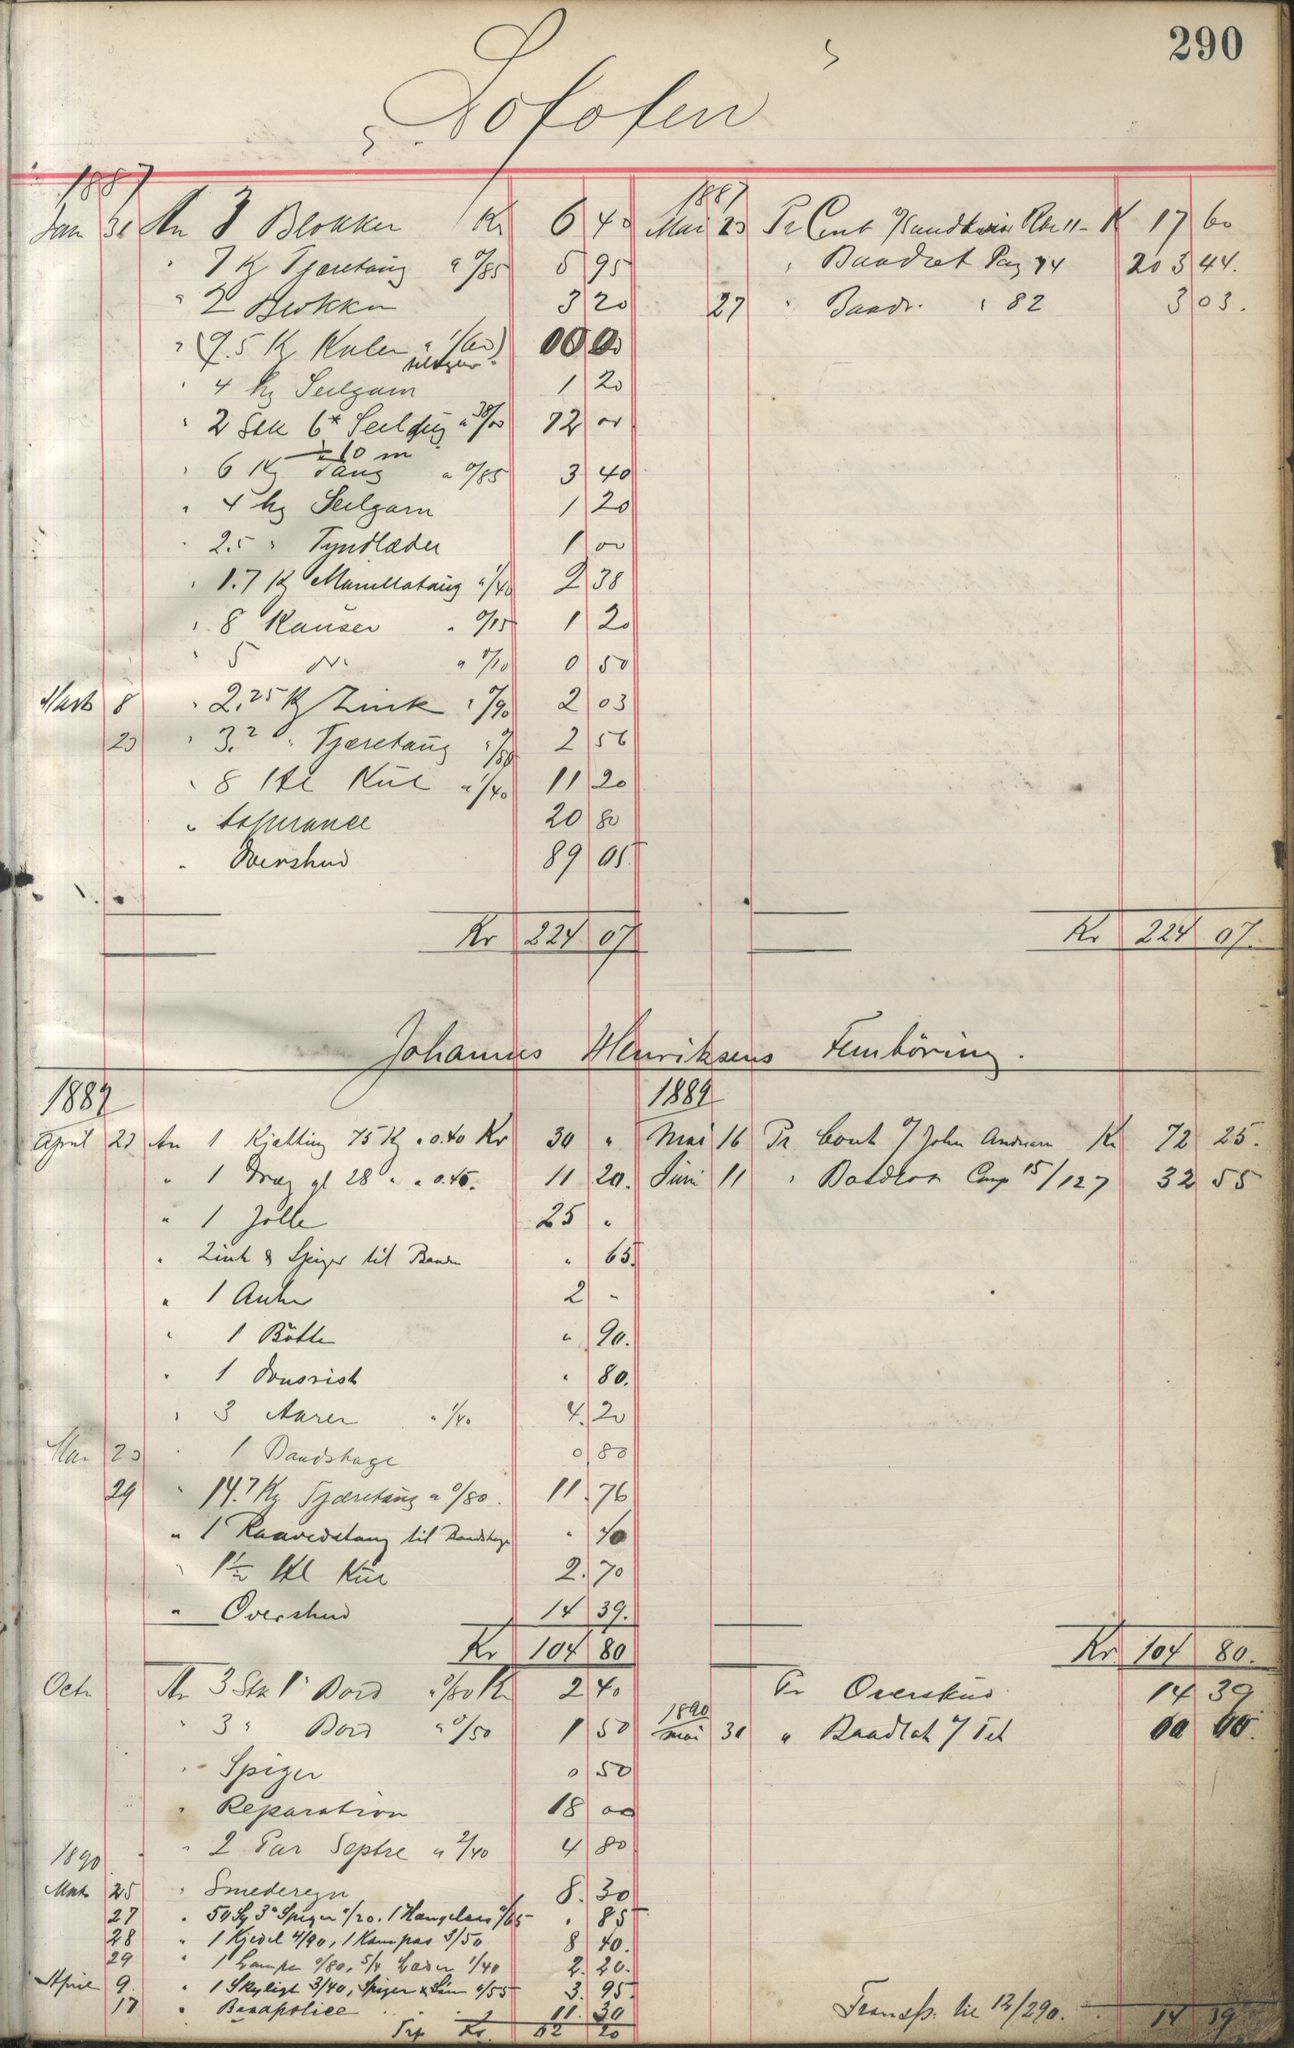 290
"Lofoten"
1887
Jan 31 An 3 Blokker Kr 6 40
" 7 Kg Tjæretaug a 0/85 5 95
" 2 Blokker 3 20
" (7.5 Kg Kuler a 1/60)
" 4 hg Seilgarn 1 20
" 2 Stk 6* Seildug a 38/00 72 00
" 6 Kg Taug a 0/85 3 40
" 4 hg Seilgarn 1 20
" 2.5 " Tyndlæder 1 00
" 1.7 Kg Manillataug a 1/40 2 38
" 8 Kauser a 0/15 1 20
" 5 do a 0/10 0 50
Marts 8 " 2.25 Kg Zink a 0/90 2 03
23 " 3.2 " Tjæretaug a 0/80 2 56
" 8 Hl Kul a 1/40 11 20
" Assurance 20 80
" Overskud 89 05
Kr 224 07
1887
Mai 23 Pr Cont 17 60
" Baadlot Pag 74 203 44.
27 " Baadl. " 82 3 03.
Kr 224 07.
Johannes Henriksens Femböring.
1889
April 23 An 1 Kjetting 75 Kg a 0.40 Kr 30 "
" 1 Drag gl 28 " a 0.40. 11 20.
" 1 Jolle 25 "
" Zink & Spiger til Baaden " 65.
" 1 Anker 2 "
" 1 Bötte " 90.
" 1 " 80.
" 3 Aarer a 1/40 4.20
Mai 23 " 1 Baadshage 0 80
29 " 14.7 Kg Tjæretaug a 0/80. 11.76
" 1 Raavedstang til Baadshage " 40
" 1½ Hl Kul 2.70
" Overskud 14 39.
Kr 104 80
1889
Mai 16 Pr Cont o/ John Andersen Kr 72 25.
Juni 11 " Baadlot Comp 15/127 32 55
Kr 104 80.
Octr An 3 Stk 1" Bord a 0/80 Kr 2 40
" 3 " Bord a 0/50 1 50
" Spiger 0 50
" Reparation 18 00
" 2 Par Septre a 2/40 4 80
1890
Marts 25 " Smederegn 8.30
27 " 50 Sg 3" Spiger 0/20. 1 Hængelaas 0/65 " 85
28 " 1 Kjedel 4/90, 1 Kompas 3/50 8 40.
29 " 1 Lampe 0/80, 5/4 Læder 1/40 2.20.
April 9. " 1 Skyligt 3/40, Spiger & Söm 0/55 3.95.
17 " Baadpolice 11.30
Trp Kr. 62 20
Pr Overskud 14 39
1890
Mai 31 " Baadlot o/
Transp. til 12/290. 14 39